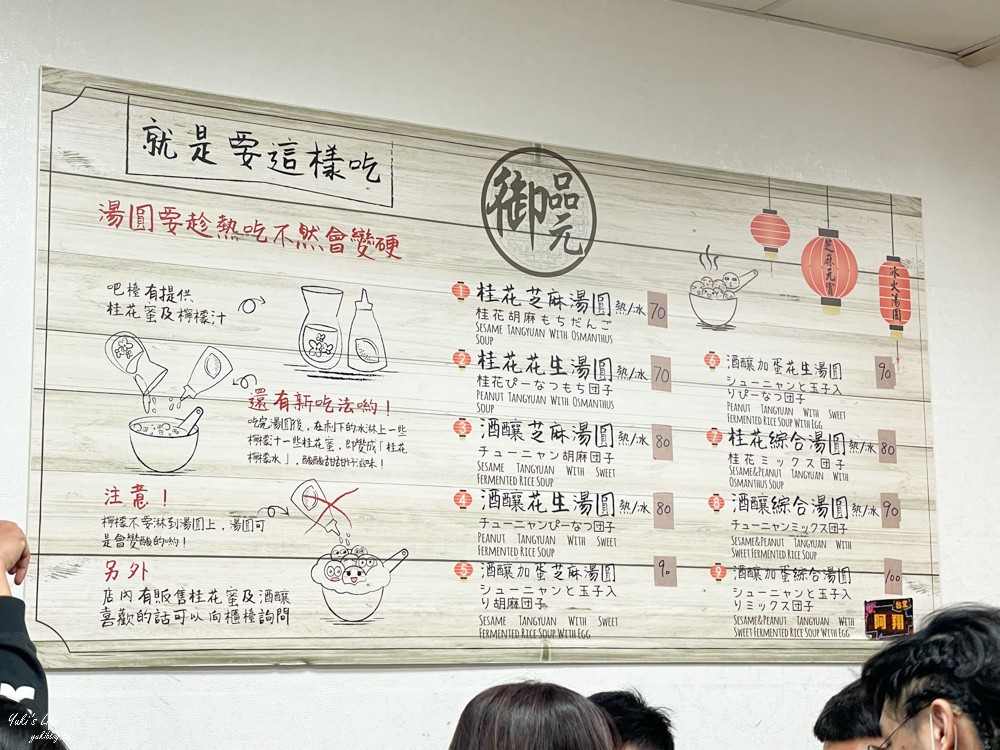 就是要這樣吃
湯圓要趁熱吃不然會變硬
吧檯有提供
桂花蜜及檸檬汁
還有新吃法喲！
吃完湯圓後，在剩下的冰淋上一些
檸檬汁一些桂花蜜，即變成「桂花
檸檬冰」，酸酸甜甜好滋味！
注意！
檸檬不要淋到湯圓上，湯圓可
是會變酸的喲！
另外
店內有販售桂花蜜及酒釀
喜歡的話可以向櫃檯詢問
御品元
芝麻元宵
冰火湯圓
1 桂花芝麻湯圓 熱/冰 70
桂花胡麻もちだんご
SESAME TANGYUAN WITH OSMANTHUS
SOUP
2 桂花花生湯圓 熱/冰 70
桂花ぴーなつもち団子
PEANUT TANGYUAN WITH OSMANTHUS
SOUP
3 酒釀芝麻湯圓 熱/冰 80
チューニャン胡麻団子
SESAME TANGYUAN WITH SWEET
FERMENTED RICE SOUP
4 酒釀花生湯圓 熱/冰 80
チューニャンぴーなつ団子
PEANUT TANGYUAN WITH SWEET
FERMENTED RICE SOUP
5 酒釀加蛋芝麻湯圓 90
シューニャンと玉子入
り胡麻団子
SESAME TANGYUAN WITH SWEET
FERMENTED RICE SOUP WITH EGG
6 酒釀加蛋花生湯圓 90
シューニャンと玉子入
りぴーなつ団子
PEANUT TANGYUAN WITH SWEET
FERMENTED RICE SOUP WITH EGG
7 桂花綜合湯圓 熱/冰 80
桂花ミックス団子
SESAME&PEANUT TANGYUAN WITH
OSMANTHUS SOUP
8 酒釀綜合湯圓 熱/冰 90
チューニャンミックス団子
SESAME&PEANUT TANGYUAN WITH
SWEET FERMENTED RICE SOUP
9 酒釀加蛋綜合湯圓 100
シューニャンと玉子入
りミックス団子
SESAME&PEANUT TANGYUAN WITH
SWEET FERMENTED RICE SOUP WITH EGG
台里
阿翔
Yuki's Li